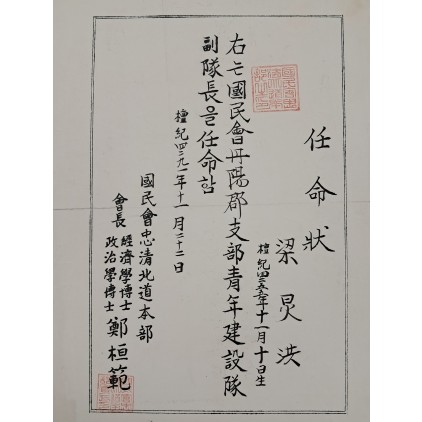 任命狀
梁炅洪
檀紀四二五五年十一月十日生
右는國民會丹陽郡支部靑年建設隊
副隊長을任命함
檀紀四二九一年十一月二十二日
國民會忠淸北道本部
會長 經濟學博士 政治學博士 鄭桓範